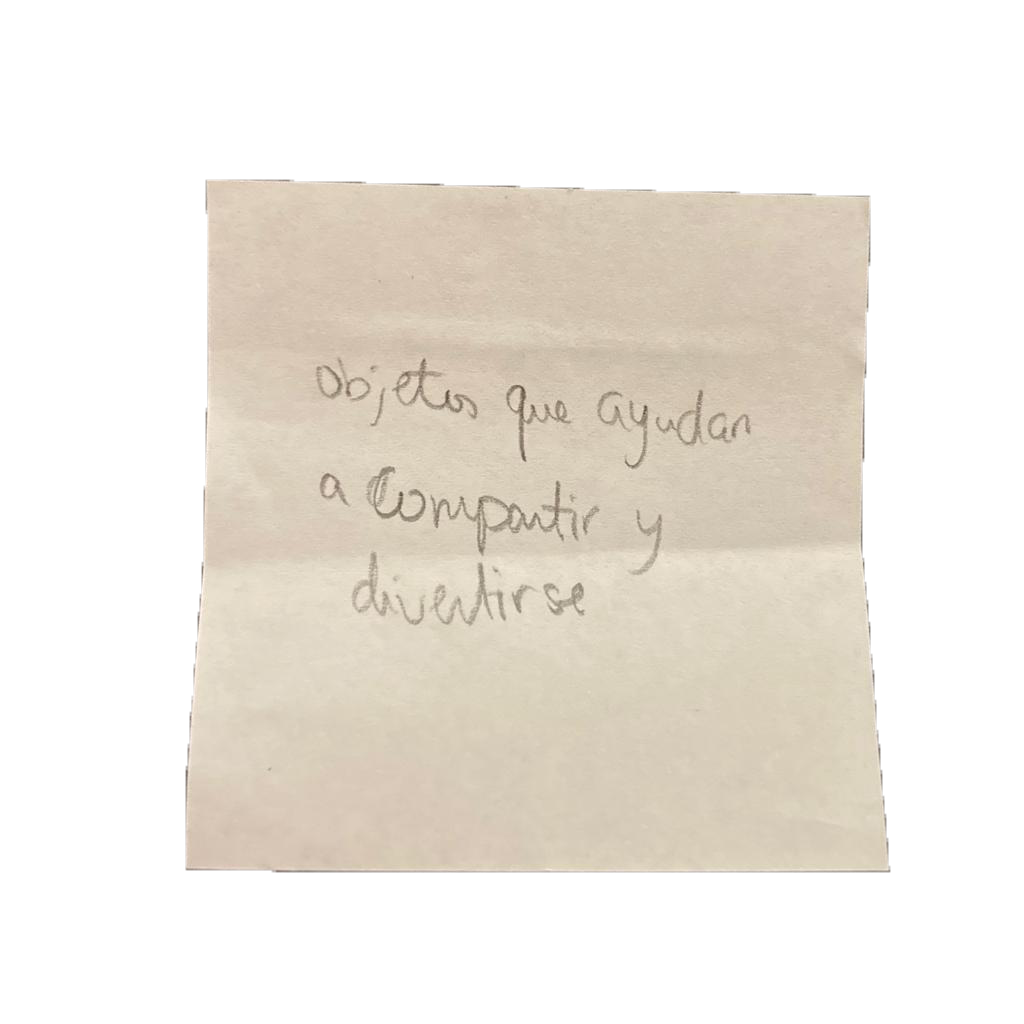 Objetos que ayudan
a Compartir y
divertirse